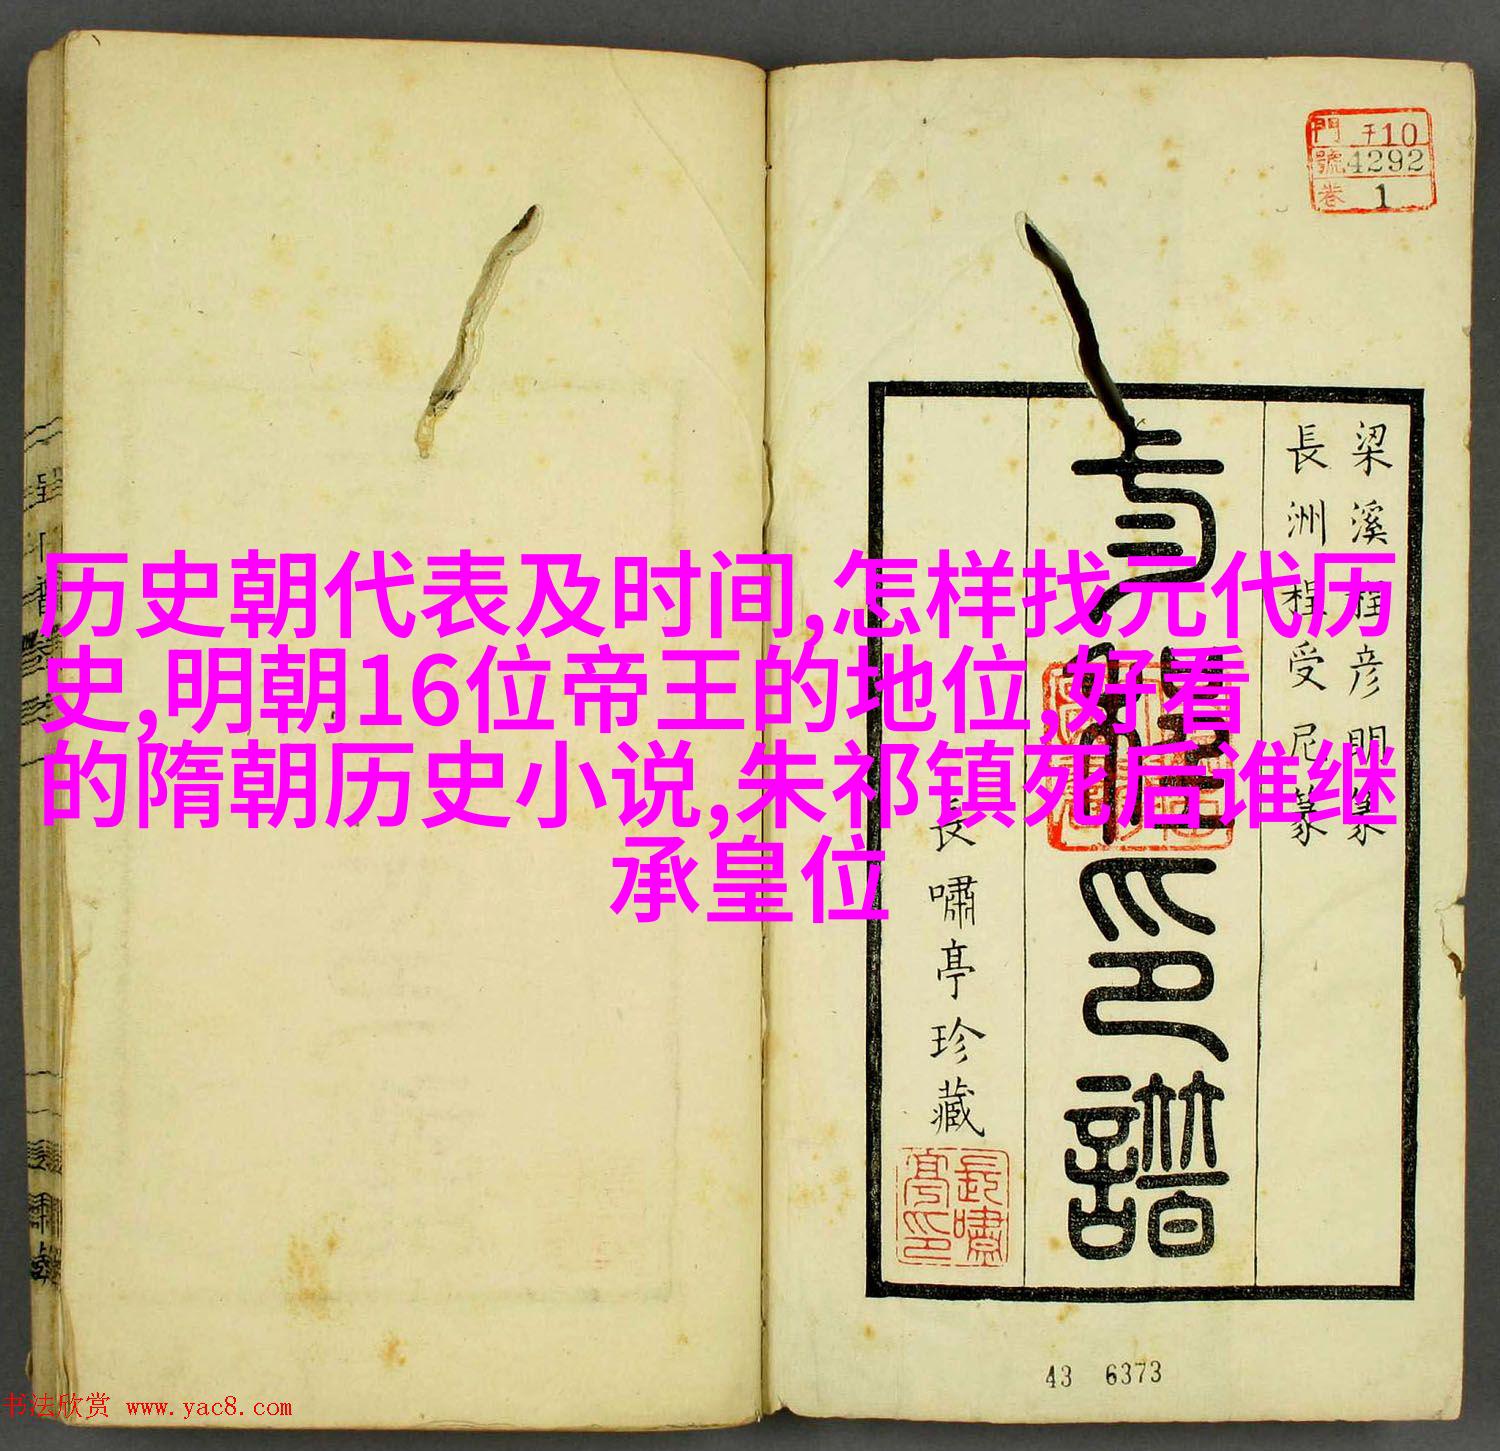 門 子10
號 4292
卷 1
梁溪程彦明篆
長洲程受尼篆
印譜
長嘯亭珍藏
长嘯亭印
历史朝代表及时间,怎样找元代历
史,明朝16位帝王的地位,好看
的隋朝历史小说,朱祁镇死后谁继
承皇位
43 6373
书法欣赏 www.yac8.com